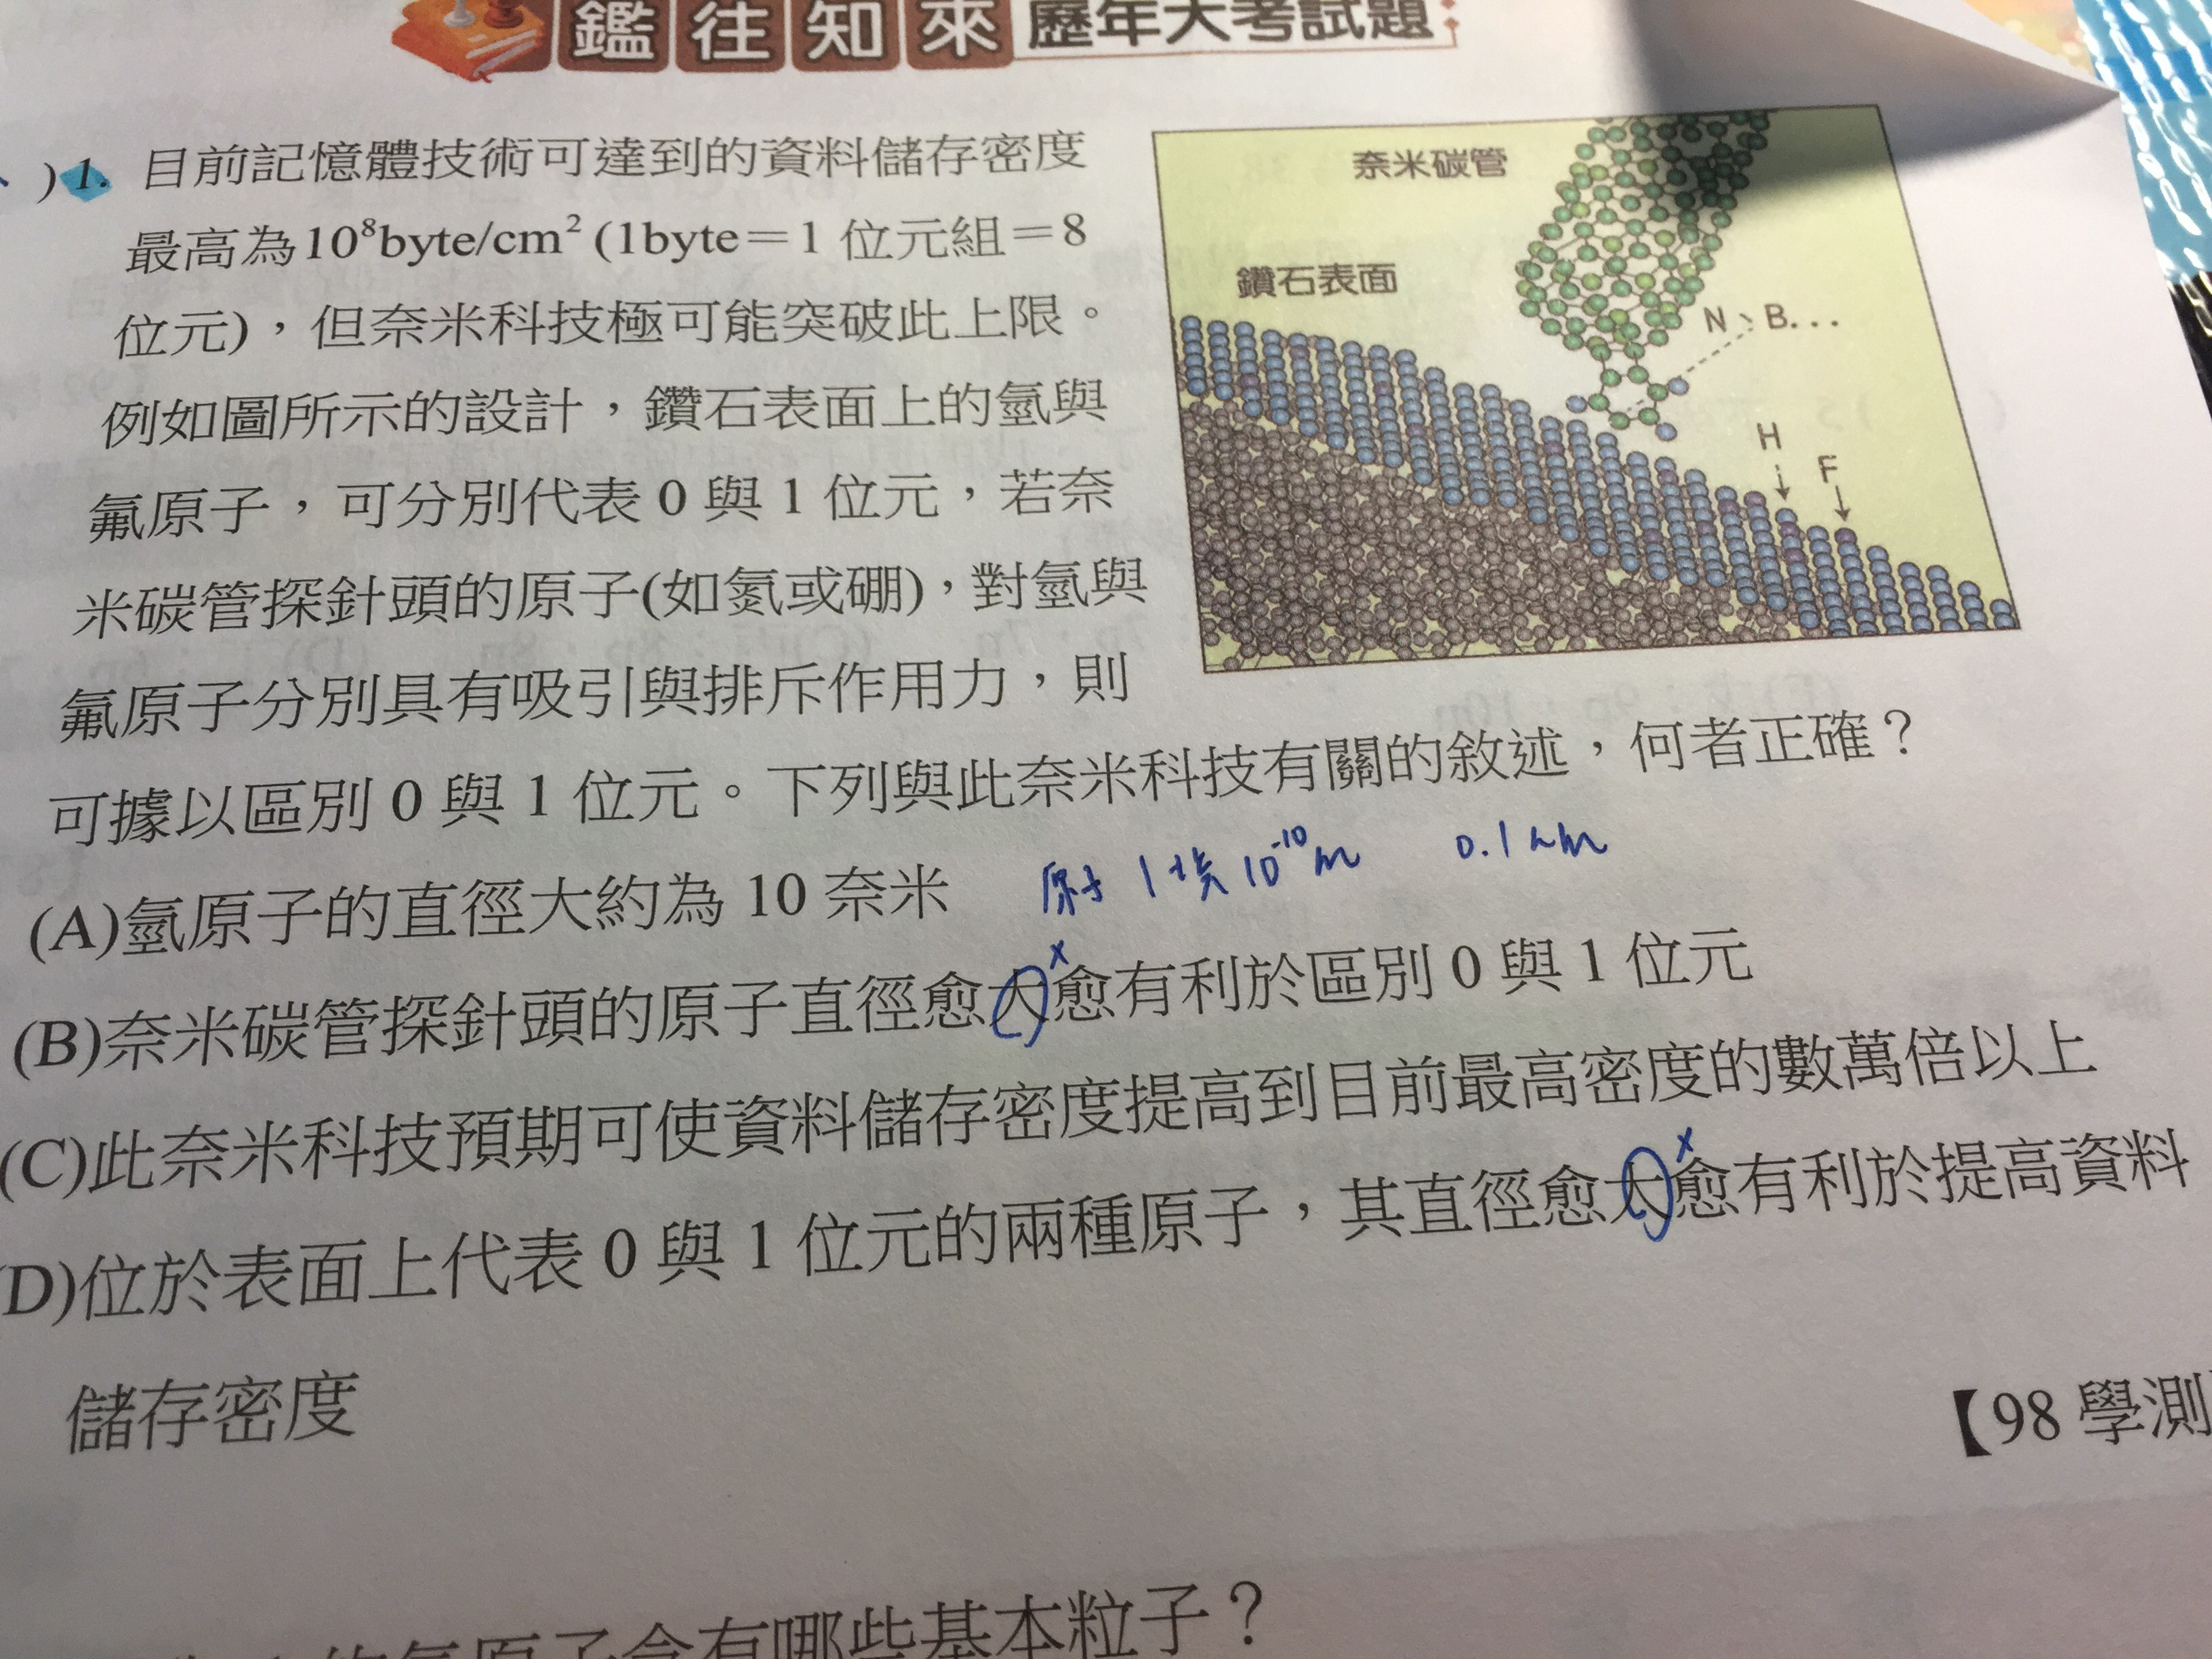 鑑往知來 歷年大考試題
)1. 目前記憶體技術可達到的資料儲存密度
最高為10⁸byte/cm² (1byte＝1 位元組＝8
位元)，但奈米科技極可能突破此上限。
例如圖所示的設計，鑽石表面上的氫與
氟原子，可分別代表 0 與 1 位元，若奈
米碳管探針頭的原子(如氮或硼)，對氫與
氟原子分別具有吸引與排斥作用力，則
可據以區別 0 與 1 位元。下列與此奈米科技有關的敘述，何者正確？
奈米碳管
鑽石表面
N、B...
H
F
(A)氫原子的直徑大約為 10 奈米
原子 1埃 10⁻¹⁰m 0.1nm
(B)奈米碳管探針頭的原子直徑愈大愈有利於區別 0 與 1 位元
x
(C)此奈米科技預期可使資料儲存密度提高到目前最高密度的數萬倍以上
(D)位於表面上代表 0 與 1 位元的兩種原子，其直徑愈大愈有利於提高資料
x
儲存密度
【98 學測
原子含有哪些基本粒子？